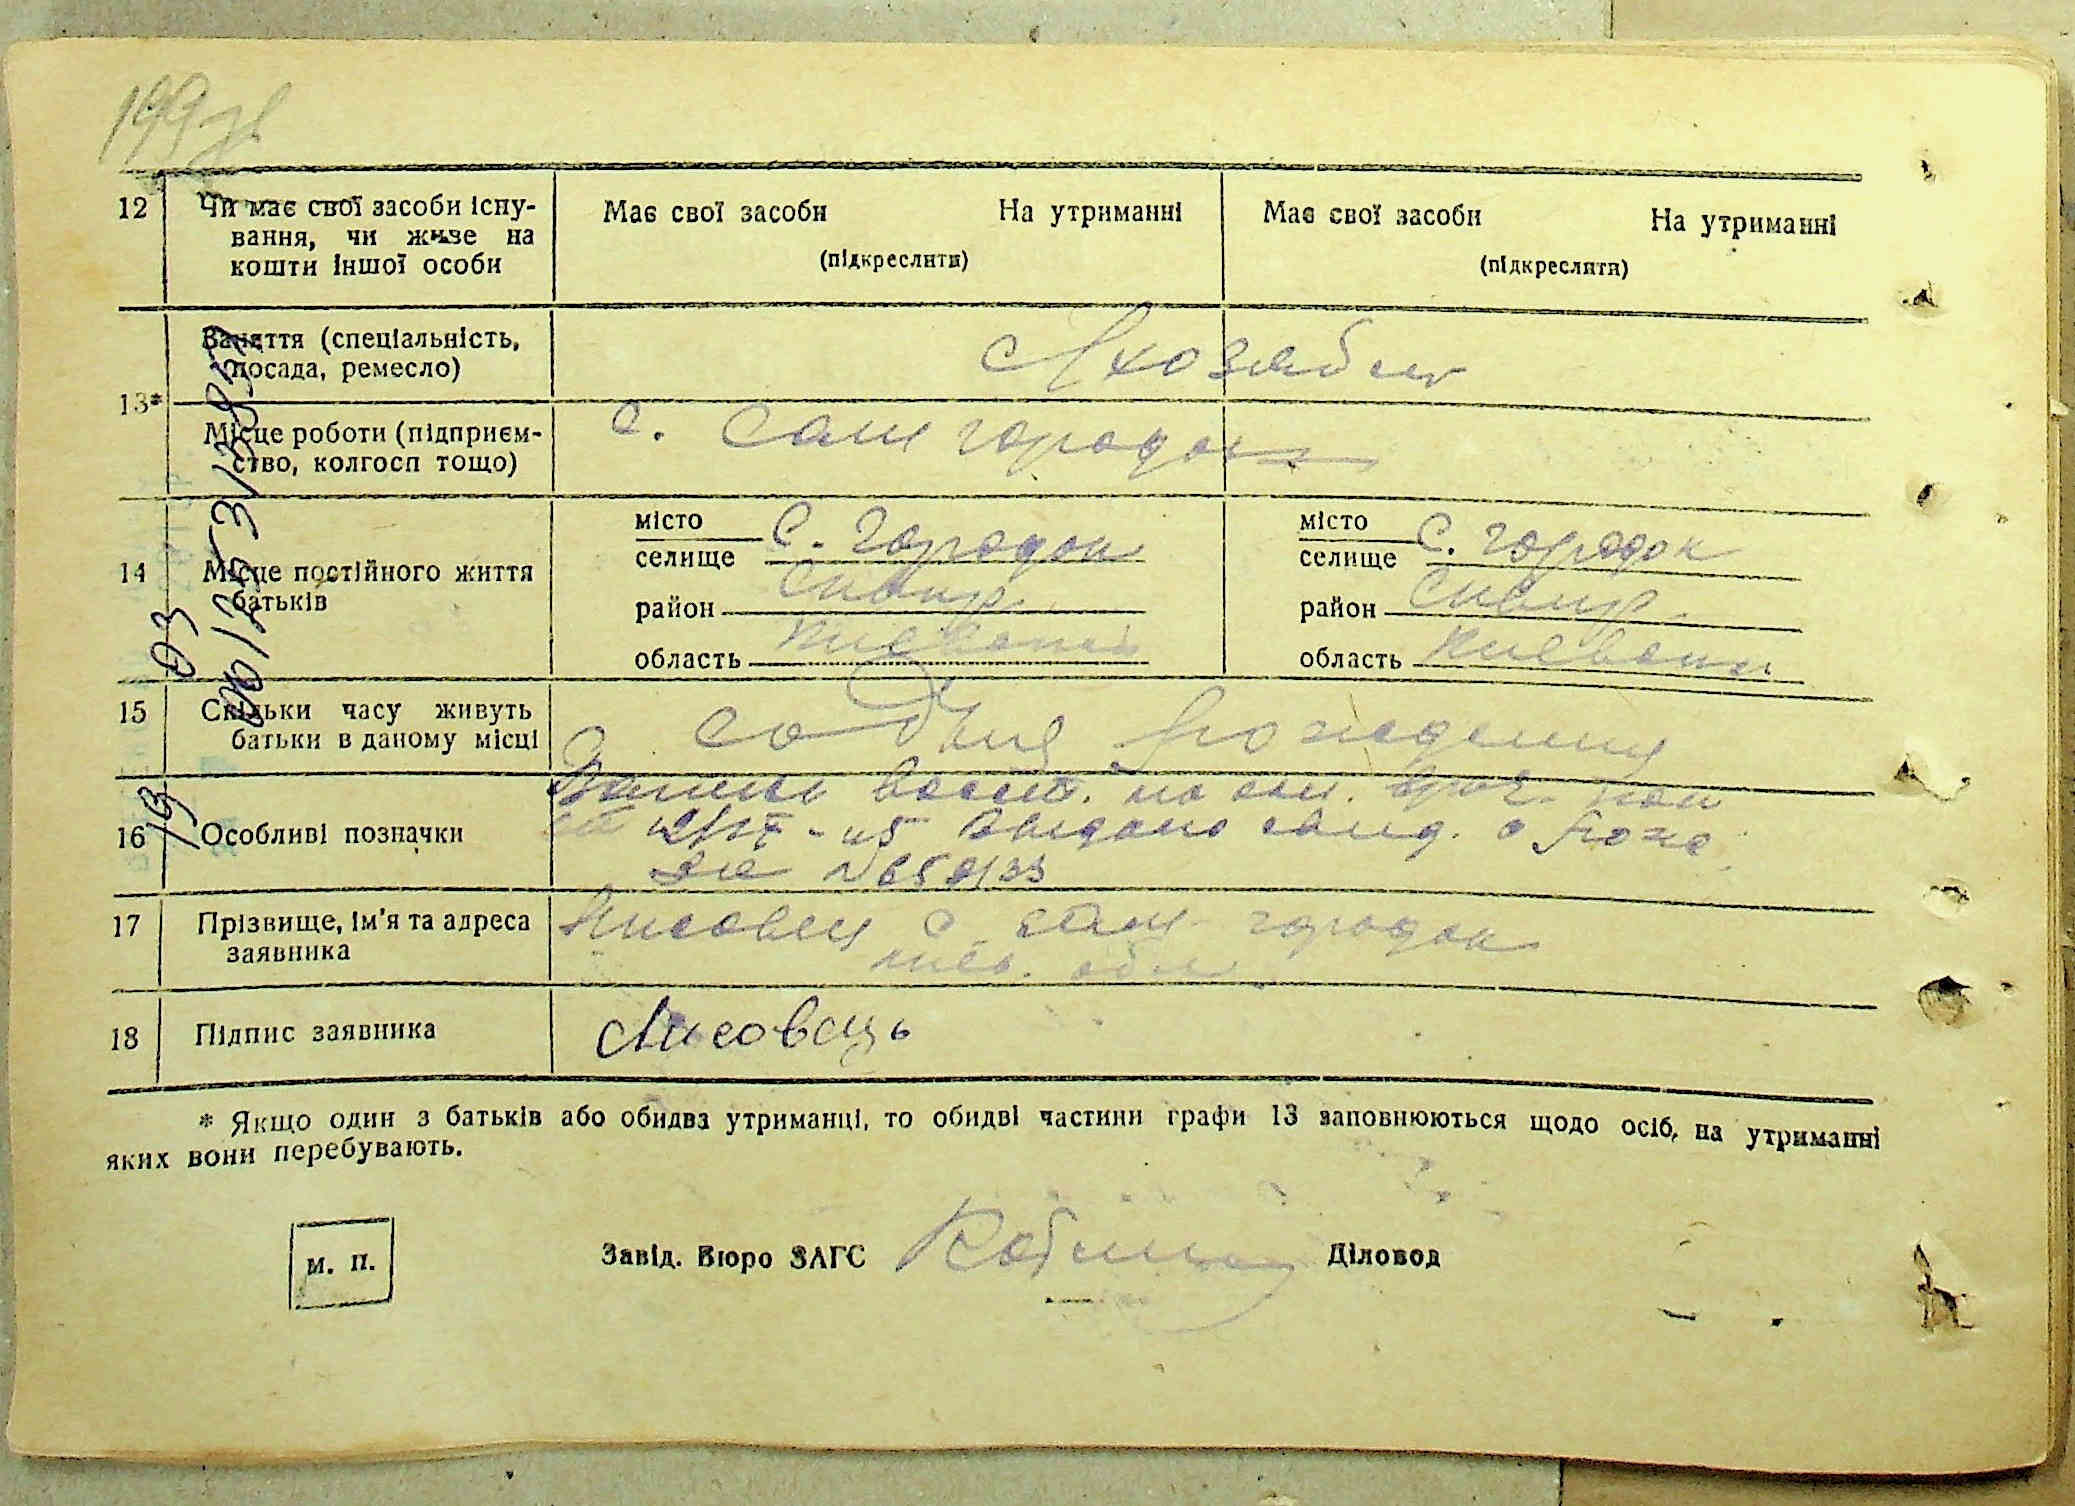 199 зв
12
Чи має свої засоби існу-
вання, чи живе на
кошти іншої особи
Має свої засоби На утриманні
(підкреслити)
Має свої засоби На утриманні
(підкреслити)
13*
Заняття (спеціальність,
посада, ремесло)
с/хозяйст
Місце роботи (підприєм-
ство, колгосп тощо)
с. Сам городок
14
Місце постійного життя
батьків
місто
селище С. Городок
район Сквир.
область Киевский
місто
селище С. Городок
район Сквир.
область Киевский
15
Скільки часу живуть
батьки в даному місці
со дня рождения
16
Особливі позначки
Запись восст. на осн.
45 выдано свид. о рожд
17
Прізвище, ім'я та адреса
заявника
Лисовец с. Сам городок
киев. обл
18
Підпис заявника
Лисовець
* Якщо один з батьків або обидва утриманці, то обидві частини графи 13 заповнюються щодо осіб, на утриманні
яких вони перебувають.
м. п.
Завід. Бюро ЗАГС
Діловод